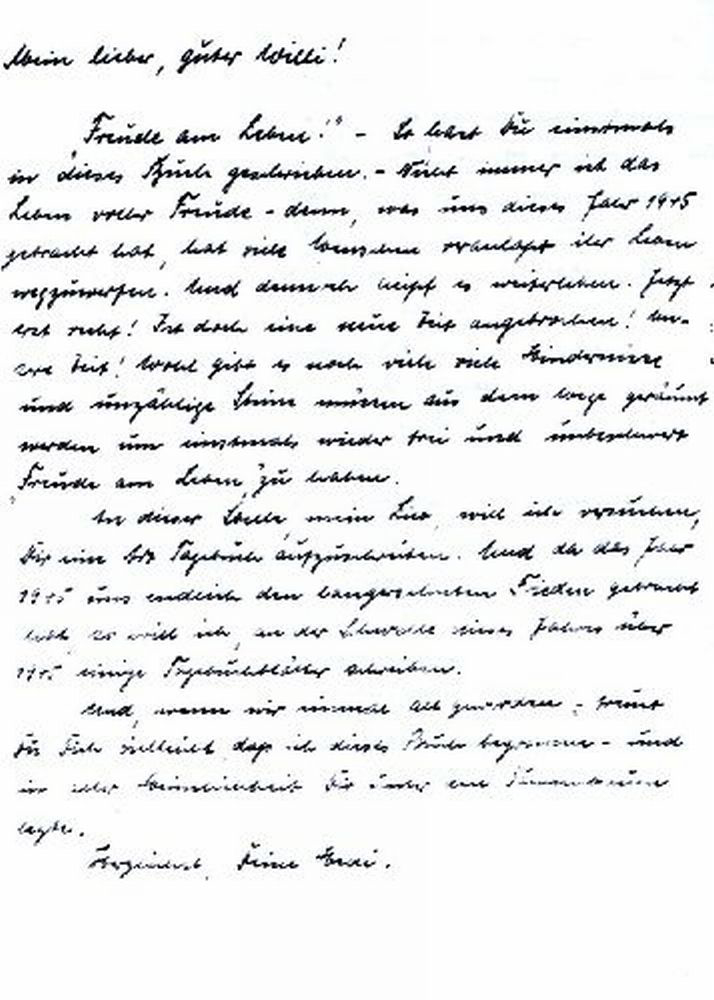 Mein lieber, guter Willi!
„Freude am Leben!“ – So hast Du einstmals
in dieses Buch geschrieben. – Nicht immer ist das
Leben voller Freude – denn, was uns dieses Jahr 1945
gebracht hat, hat viele Menschen veranlaßt ihr Leben
wegzuwerfen. Und dennoch heißt es weiterleben. Jetzt
erst recht! Ist doch eine neue Zeit angebrochen! Un-
sere Zeit! Wohl gibt es noch viele viele Hindernisse
und unzählige Steine müssen aus dem Wege geräumt
werden um einstmals wieder frei und unbeschwert
„Freude am Leben“ zu haben.
An dieser Stelle, mein will ich versuchen,
Dir eine Art Tagebuch aufzuschreiben. Und da das Jahr
1945 uns endlich den langersehnten Frieden gebracht
hat, so will ich, an der Schwelle dieses Jahres über
1945 einige Tagebuchblätter schreiben.
Und, wenn wir einmal alt geworden – freust
Du Dich vielleicht daß ich dieses Buch begonnen – und
in aller Heimlichkeit Dir unter den
legte.
Herzlichst, Deine Hedi.